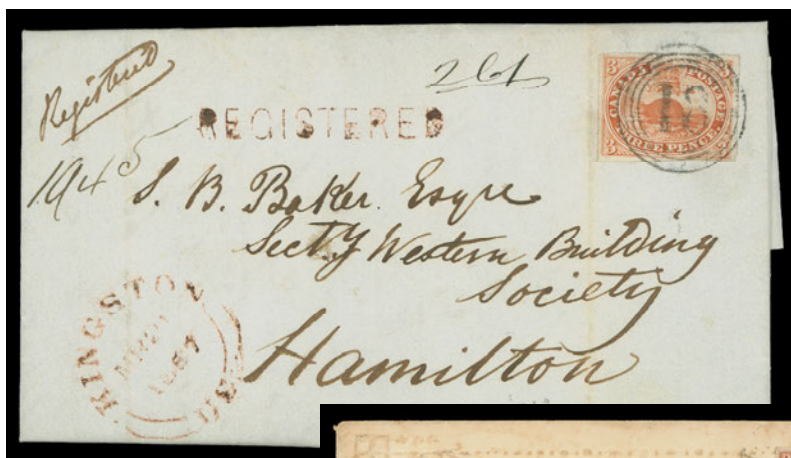 Registered
261
3 CANADA POSTAGE 3
3 THREE PENCE. 3
REGISTERED
1945
S. B. Baker. Esqre
Secty Western Building
Society
Hamilton
KINGSTON
1857
U.C